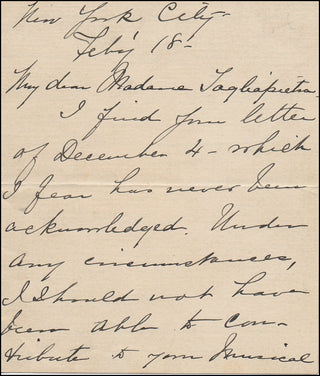 New York City -
Feb'y 18 -
My dear Madame Tagliapietra -
I find your letter
of December 4 - which
I fear has never been
acknowledged. Under
any circumstances,
I should not have
been able to con-
tribute to your Musical